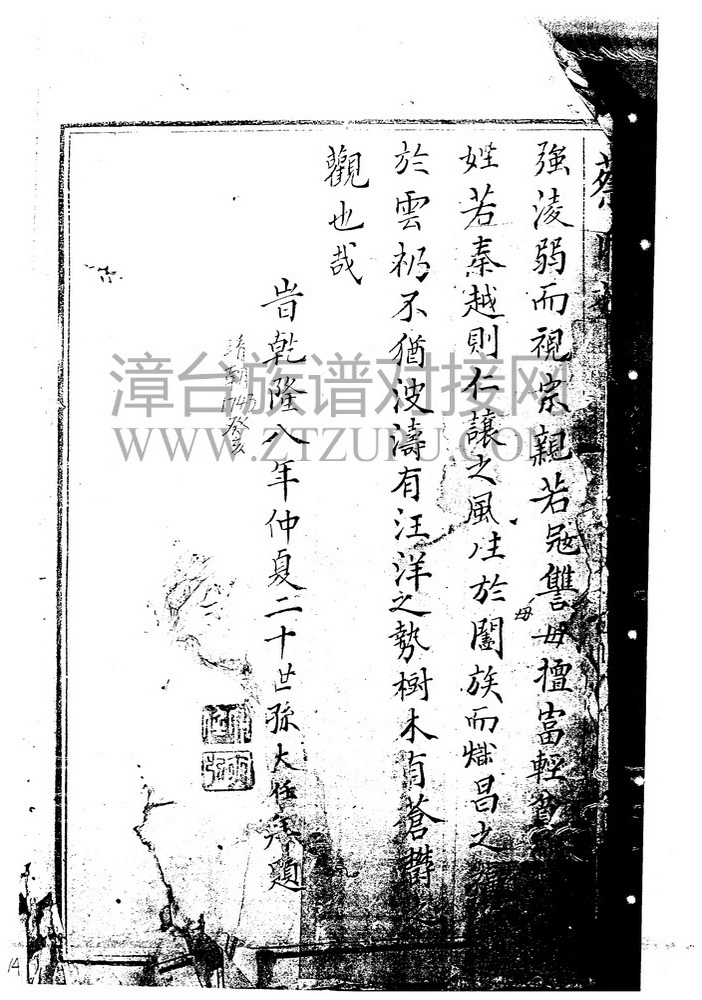 蔡
強淩弱而視宗親若寇讐毋擅富輕貧
姓若秦越則仁讓之風生於闔族而熾昌之
毋
於雲礽不猶波濤有汪洋之勢樹木有蒼欝之
觀也哉
旹乾隆八年仲夏二十世孫大任拜題
清朝
1743
癸亥
漳台族谱对接网
WWW.ZTZUPU.COM
14